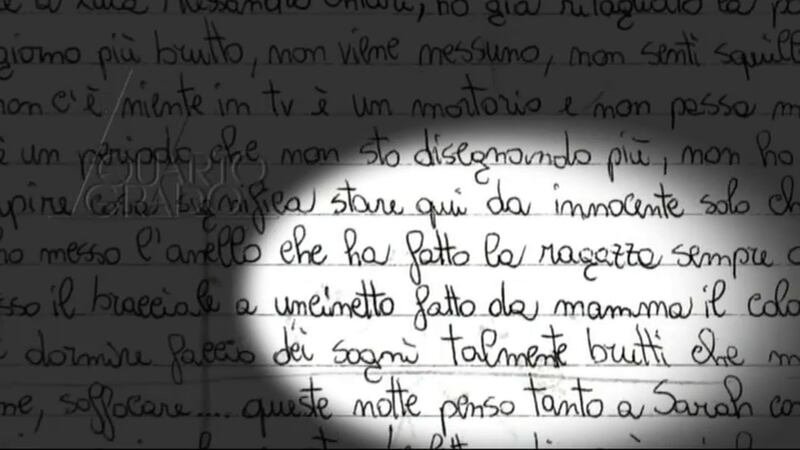 giorno più brutto, non viene nessuno, non senti squill
non c'è niente in tv è un mortorio e non passa m
è un periodo che non sto disegnando più, non ho
QUARTO
GRADO
pire cosa significa stare qui da innocente solo ch
ho messo l'anello che ha fatto la ragazza sempre
sso il bracciale a uncinetto fatto da mamma il colo
dormire faccio dei sogni talmente brutti che m
ne, soffocare.... queste notte penso tanto a Sarah con